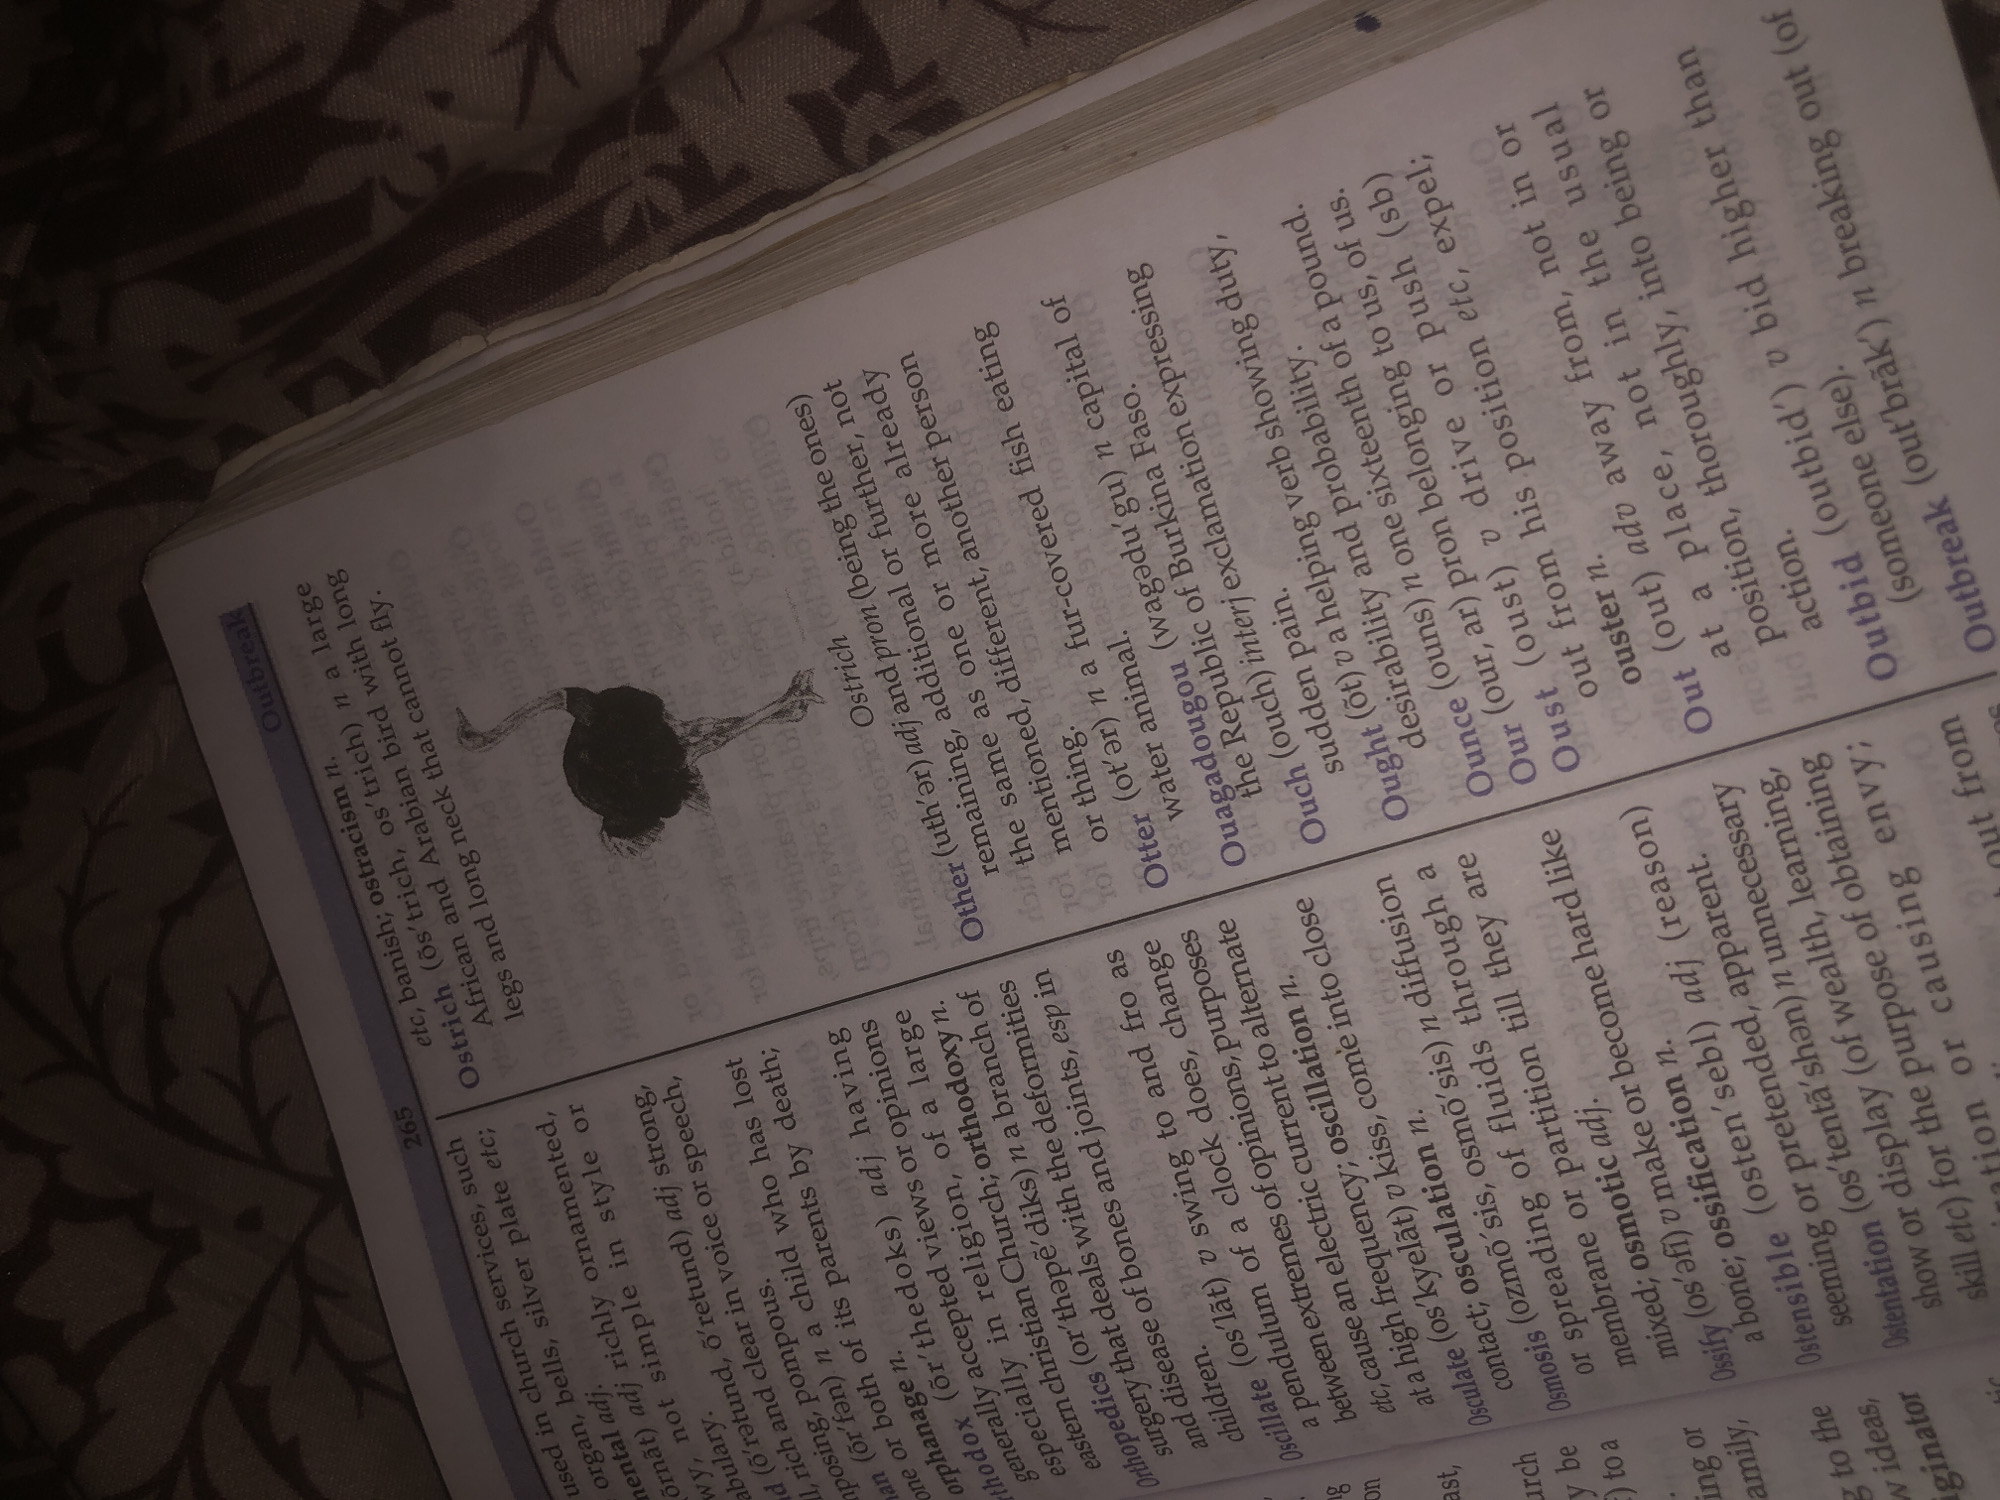 265
Outbreak
used in church services, such
organ, bells, silver plate etc;
mental adj.
richly ornamented,
simple in style or
not
strong,
in voice or speech,
rich and pompous.
n a child who has lost
both of its parents by death;
orphanage n.
(ōr'thədoks) adj having
generally accepted views or opinions
especially in religion, of a large
eastern christian Church; orthodoxy n.
Orthopedics (or'thəpē'diks) n a branch of
surgery that deals with the deformities
and disease of bones and joints, esp in
children.
Oscillate (os'lāt) v swing to and fro as
a pendulum of a clock does, change
between extremes of opinions, purposes
etc, cause an electric current to alternate
at a high frequency; oscillation n.
Osculate (os'kyelāt) v kiss, come into close
contact; osculation n.
Osmosis (ozmō'sis, osmō'sis) n diffusion
or spreading of fluids through a
membrane or partition till they are
mixed; osmotic adj.
Ossify (os'əfi) v make or become hard like
a bone; ossification n.
Ostensible (osten'sebl) adj (reason)
seeming or pretended, apparent.
Ostentation (os'tentā'shən) n unnecessary
show or display (of wealth, learning,
skill etc) for the purpose of obtaining
or causing envy;
out from
etc, banish; ostracism n.
Ostrich (ōs'trich, os'trich) n a large
African and Arabian bird with long
legs and long neck that cannot fly.
Ostrich
Other (uth'ər) adj and pron (being the ones)
remaining, additional or further, not
the same as one or more already
mentioned, different, another person
or thing.
Otter (ot'ər) n a fur-covered fish eating
water animal.
Ouagadougou (wagədu'gu) n capital of
the Republic of Burkina Faso.
Ouch (ouch) interj exclamation expressing
sudden pain.
Ought (ōt) v a helping verb showing duty,
desirability and probability.
Ounce (ouns) n one sixteenth of a pound.
Our (our, ar) pron belonging to us, of us.
Oust (oust) v drive or push (sb)
out from his position etc, expel;
ouster n.
Out (out) adv away from, not in or
at a place, not in the usual
position, thoroughly, into being or
action.
Outbid (outbid') v bid higher than
(someone else).
Outbreak (out'brāk') n breaking out (of